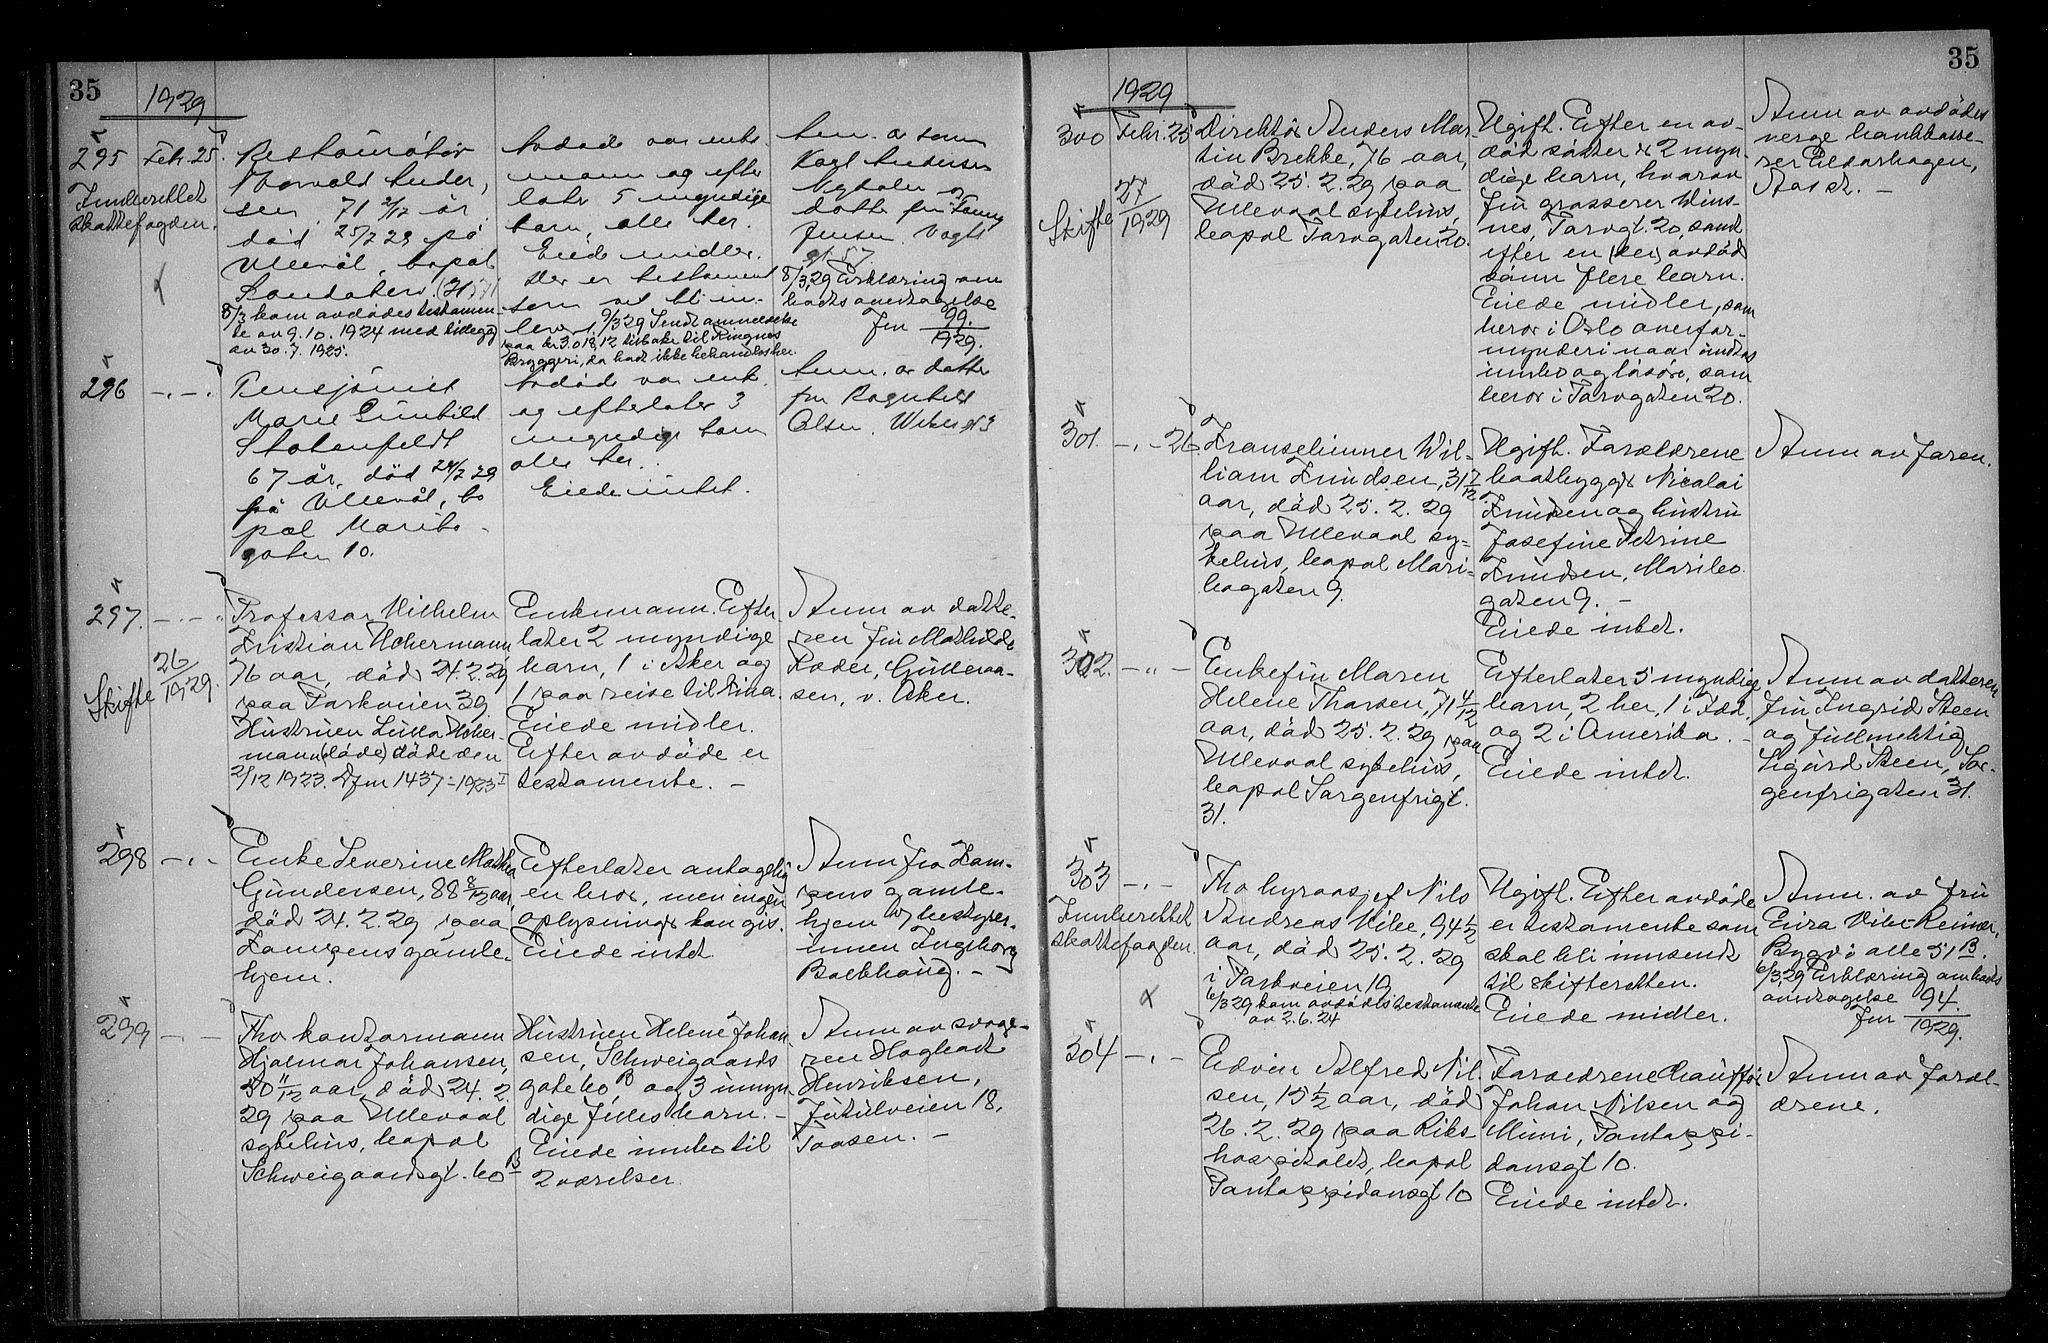 35
1929
295
Febr. 25.
Innberettet
skattefogden.
Restauratør
Thorvald Ander,
sen, 71 2/12 år
død 25/2 29 på
Ullevål, bopæl
8/3 kom avdødes testamen-
te av 9.10.1924 med tillegg
av 30.7.1925.
Avdøde var enke
mann og efter
later 5 myndige
barn, alle her.
Eiede midler.
Der er testament
som vil bli in-
lever. 9/3 29 Sendt anmeldelse
paa kr 3.018,12 tilbake til Ringnes
Bryggeri, da boet ikke behandles her.
Anm. av sønn
Karl Andersen
datter fru Fanny
Jensen, Vogts
gt. 57.
8/3 29 Erklæring om
boets overtagelse
Jnr 99.
1929.
296
-"-
Pensjonist
Marie Gunhild
Stoltenfeldt
67 år, død 24/2 29
på Ullevål, bo
pæl Maribo-
gaten 10.
Avdøde var enke
og efterlater 3
myndige barn
alle her.
Eiede intet.
Anm. av datter
fru Ragnhild
Olsen,
297.
-"-
Skifte 26/1929.
Professor Vilhelm
Kristian Uchermann
76 aar, død 24.2.29
paa Parkveien 39.
Hustruen Lulla Ucher-
mann (døde) døde den
2/12 1923. Djnr 1437-1923 I
Enkemann. Efter-
later 2 myndige
barn, 1 i Aker og
1 paa reise til Kina.
Eiede midler.
Efter avdøde er
testamente. -
Anm. av datte-
ren fru Mathilde
Ræder, Gulleraa-
sen, v. Aker.
298
-"-
Enke Severine Mathea
Gundersen, 88 8/12 aar,
død 24.2.29 paa
Kampens gamle-
hjem.
Efterlater antagelig
en bror, men ingen
oplysninger kan gis.
Eiede intet.
Anm fra Kam-
pens gamle-
hjem v/ bestyrer-
innen Ingeborg
Bakhaug. -
299
-"-
Fho kontormann
Hjalmar Johansen,
30 11/12 aar, død 24.2.
29 paa Ullevaal
sykehus, bopæl
Schweigaardsgt. 60 B
Hustruen Helene Johan
sen, Schweigaards
gate 60 B og 3 umyn-
dige fælles barn. -
Eiede innbo til
2 værelser.
Anm av svoge-
ren Hagbart
Henriksen,
Jutulveien 18,
Taasen. -
35
1929
300
Febr. 25
Skifte 27/1929
Direktør Anders Mar-
tin Brekke, 76 aar,
død 25.2.29 paa
Ullevaal sykehus,
bopæl Torvgaten 20.
Ugift. Efter en av-
død søster er 2 myn-
dige barn, hvorav
fru grosserer Wins-
nes, Torvgt. 20, samt
efter en (her) avdød
sønn flere barn.
Eiede midler, som
beror i Oslo overfor-
mynderi naar undtas
innbo og løsøre, som
beror i Torvgaten 20.
Anm av avdødes
verge bankkasse-
rer Eldarhagen,
Aas st. -
301.
-"- 26.
Franselimmer Wil-
liam Knudsen, 31 7/12
aar, død 25.2.29
paa Ullevaal sy-
kehus, bopæl Mari-
bogaten 9.
Ugift. Forældrene
baatbygger Nicolai
Knudsen og hustru
Josefine Petrine
Knudsen, Maribo
gaten 9. -
Eiede intet.
Anm av faren.
302.
-"-
Enkefru Maren
Helene Thorsen, 71 4/12
aar, død 25.2.29 paa
Ullevaal sykehus,
bopæl Sorgenfrigt.
31.
Efterlater 5 myndige
barn, 2 her, 1 i
og 2 i Amerika. -
Eiede intet.
Anm av datteren
fru Ingrid Steen
og fullmektig
Sigurd Steen, Sor-
genfrigaten 31.
303
-"-
Innberettet
skattefogden.
Fho byraasjef Nils
Andreas Vibe, 94 1/2
aar, død 25.2.29
i Parkveien 19
6/3 29 kom avdødes testamente
av 2.6.24
Ugift. Efter avdøde
er testamente som
skal bli innsendt
til skifteretten.
Eiede midler.
Anm. av fru
Eira Vibe-Reimer,
Bygdø alle 51 B.
6/3 29 Erklæring om boets
overtagelse
Jnr 94.
1929.
304
-"-
Edvin Alfred Nil-
sen, 15 1/2 aar, død
26.2.29 paa Riks-
hospitalet, bopæl
Pontoppidansgt 10
Forældrene chauffør
Johan Nilsen og
Mimi, Pontoppi-
dansgt 10.
Eiede intet.
Anm av foræl-
drene.